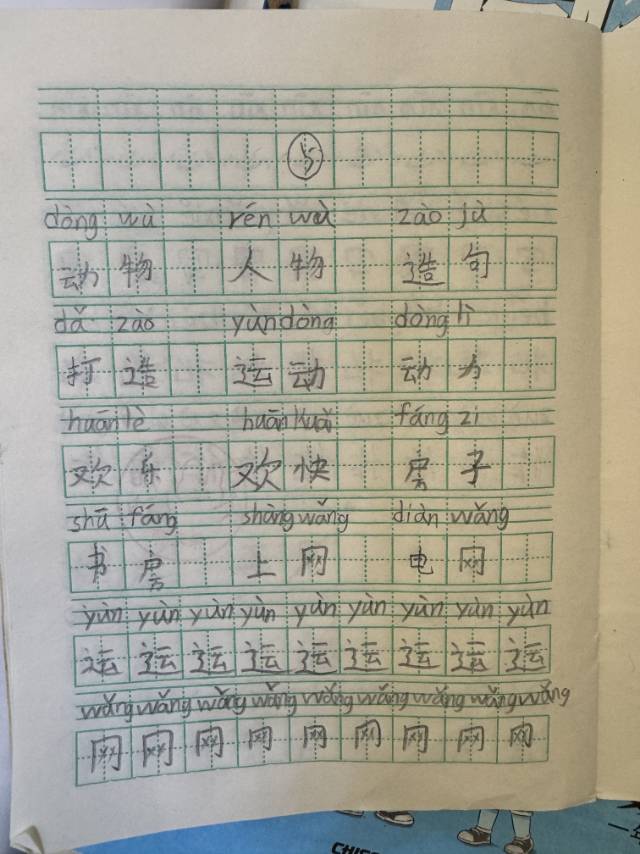 5
dòng wù rén wù zào jù
动物 人物 造句
dǎ zào yùn dòng dòng lì
打造 运动 动力
huān lè huān kuài fáng zi
欢乐 欢快 房子
shū fáng shàng wǎng diàn wǎng
书房 上网 电网
yùn yùn yùn yùn yùn yùn yùn yùn yùn
运运运运运运运运运
wǎng wǎng wǎng wǎng wǎng wǎng wǎng wǎng wǎng
网网网网网网网网网